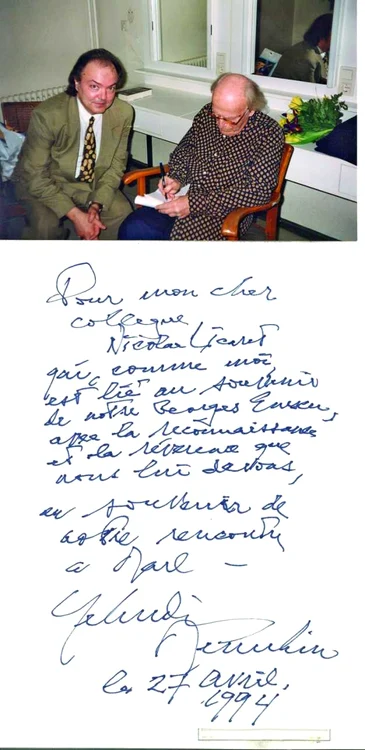 Pour mon cher
collegue
Nicolae Licaret
qui, comme moi,
est lié au souvenir
de notre Georges Enescu,
avec la reconnaissance
et la révérence que
nous lui devons,
au souvenir de
notre rencontre
a Marl —
Yehudi
Menuhin
le 27 avril,
1994